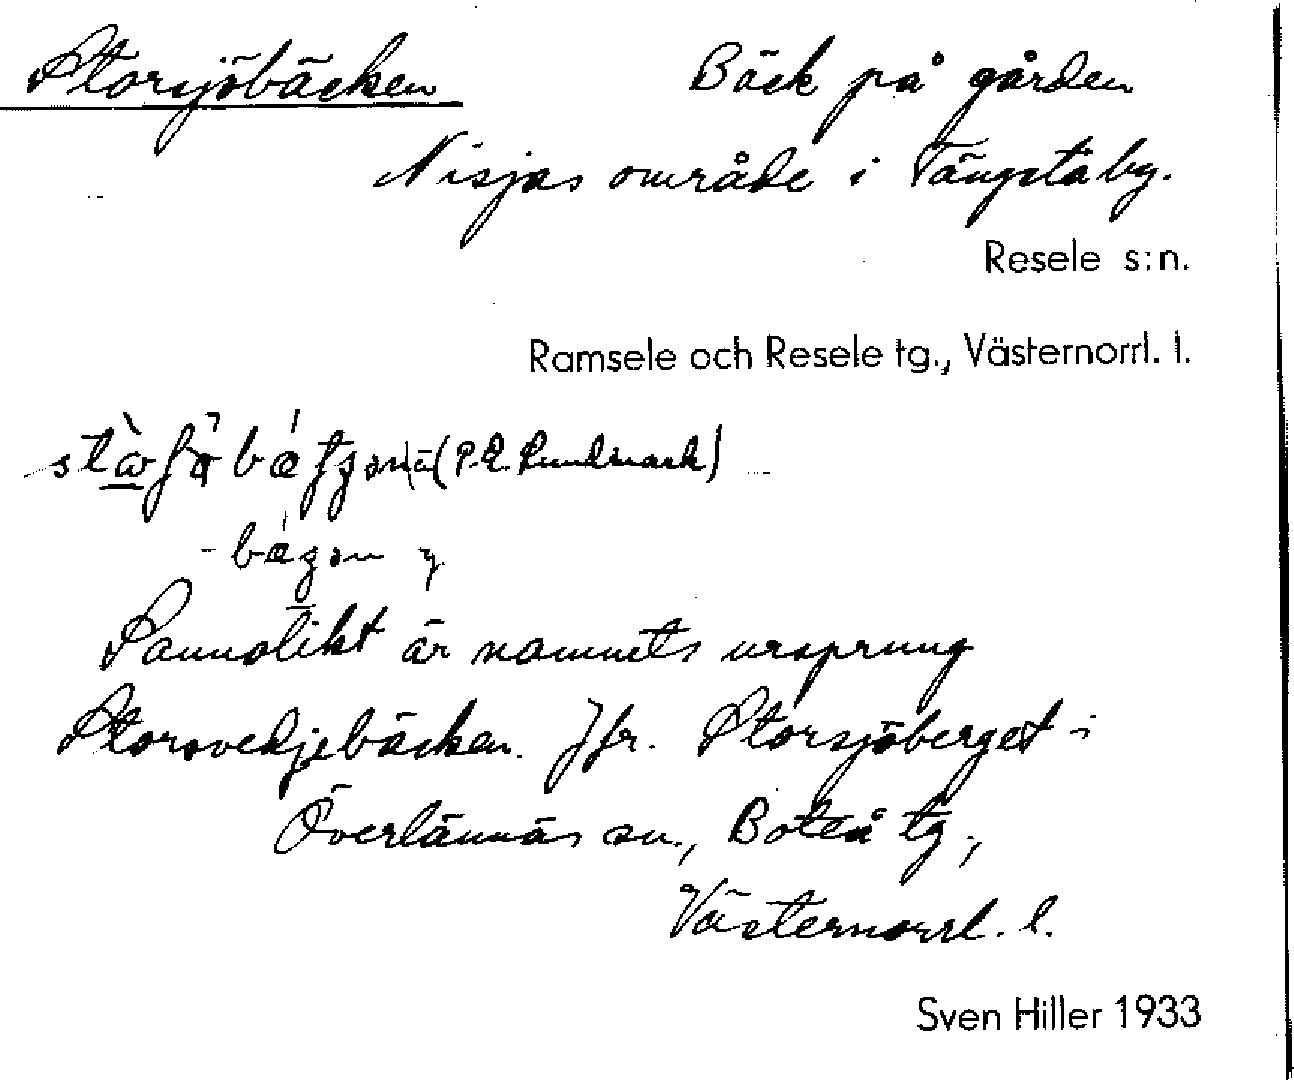 Storsjöbäcken Bäck på gården
Nisjas område i Tängsta by.
Resele s:n.
Ramsele och Resele tg., Västernorrl. l.
(P.E. Rundmark)
Sannolikt är namnets ursprung
Storsvedjebäcken. Jfr. Storsjöberget i
Överlännäs sn., Boteå tg.,
Västernorrl. l.
Sven Hiller 1933